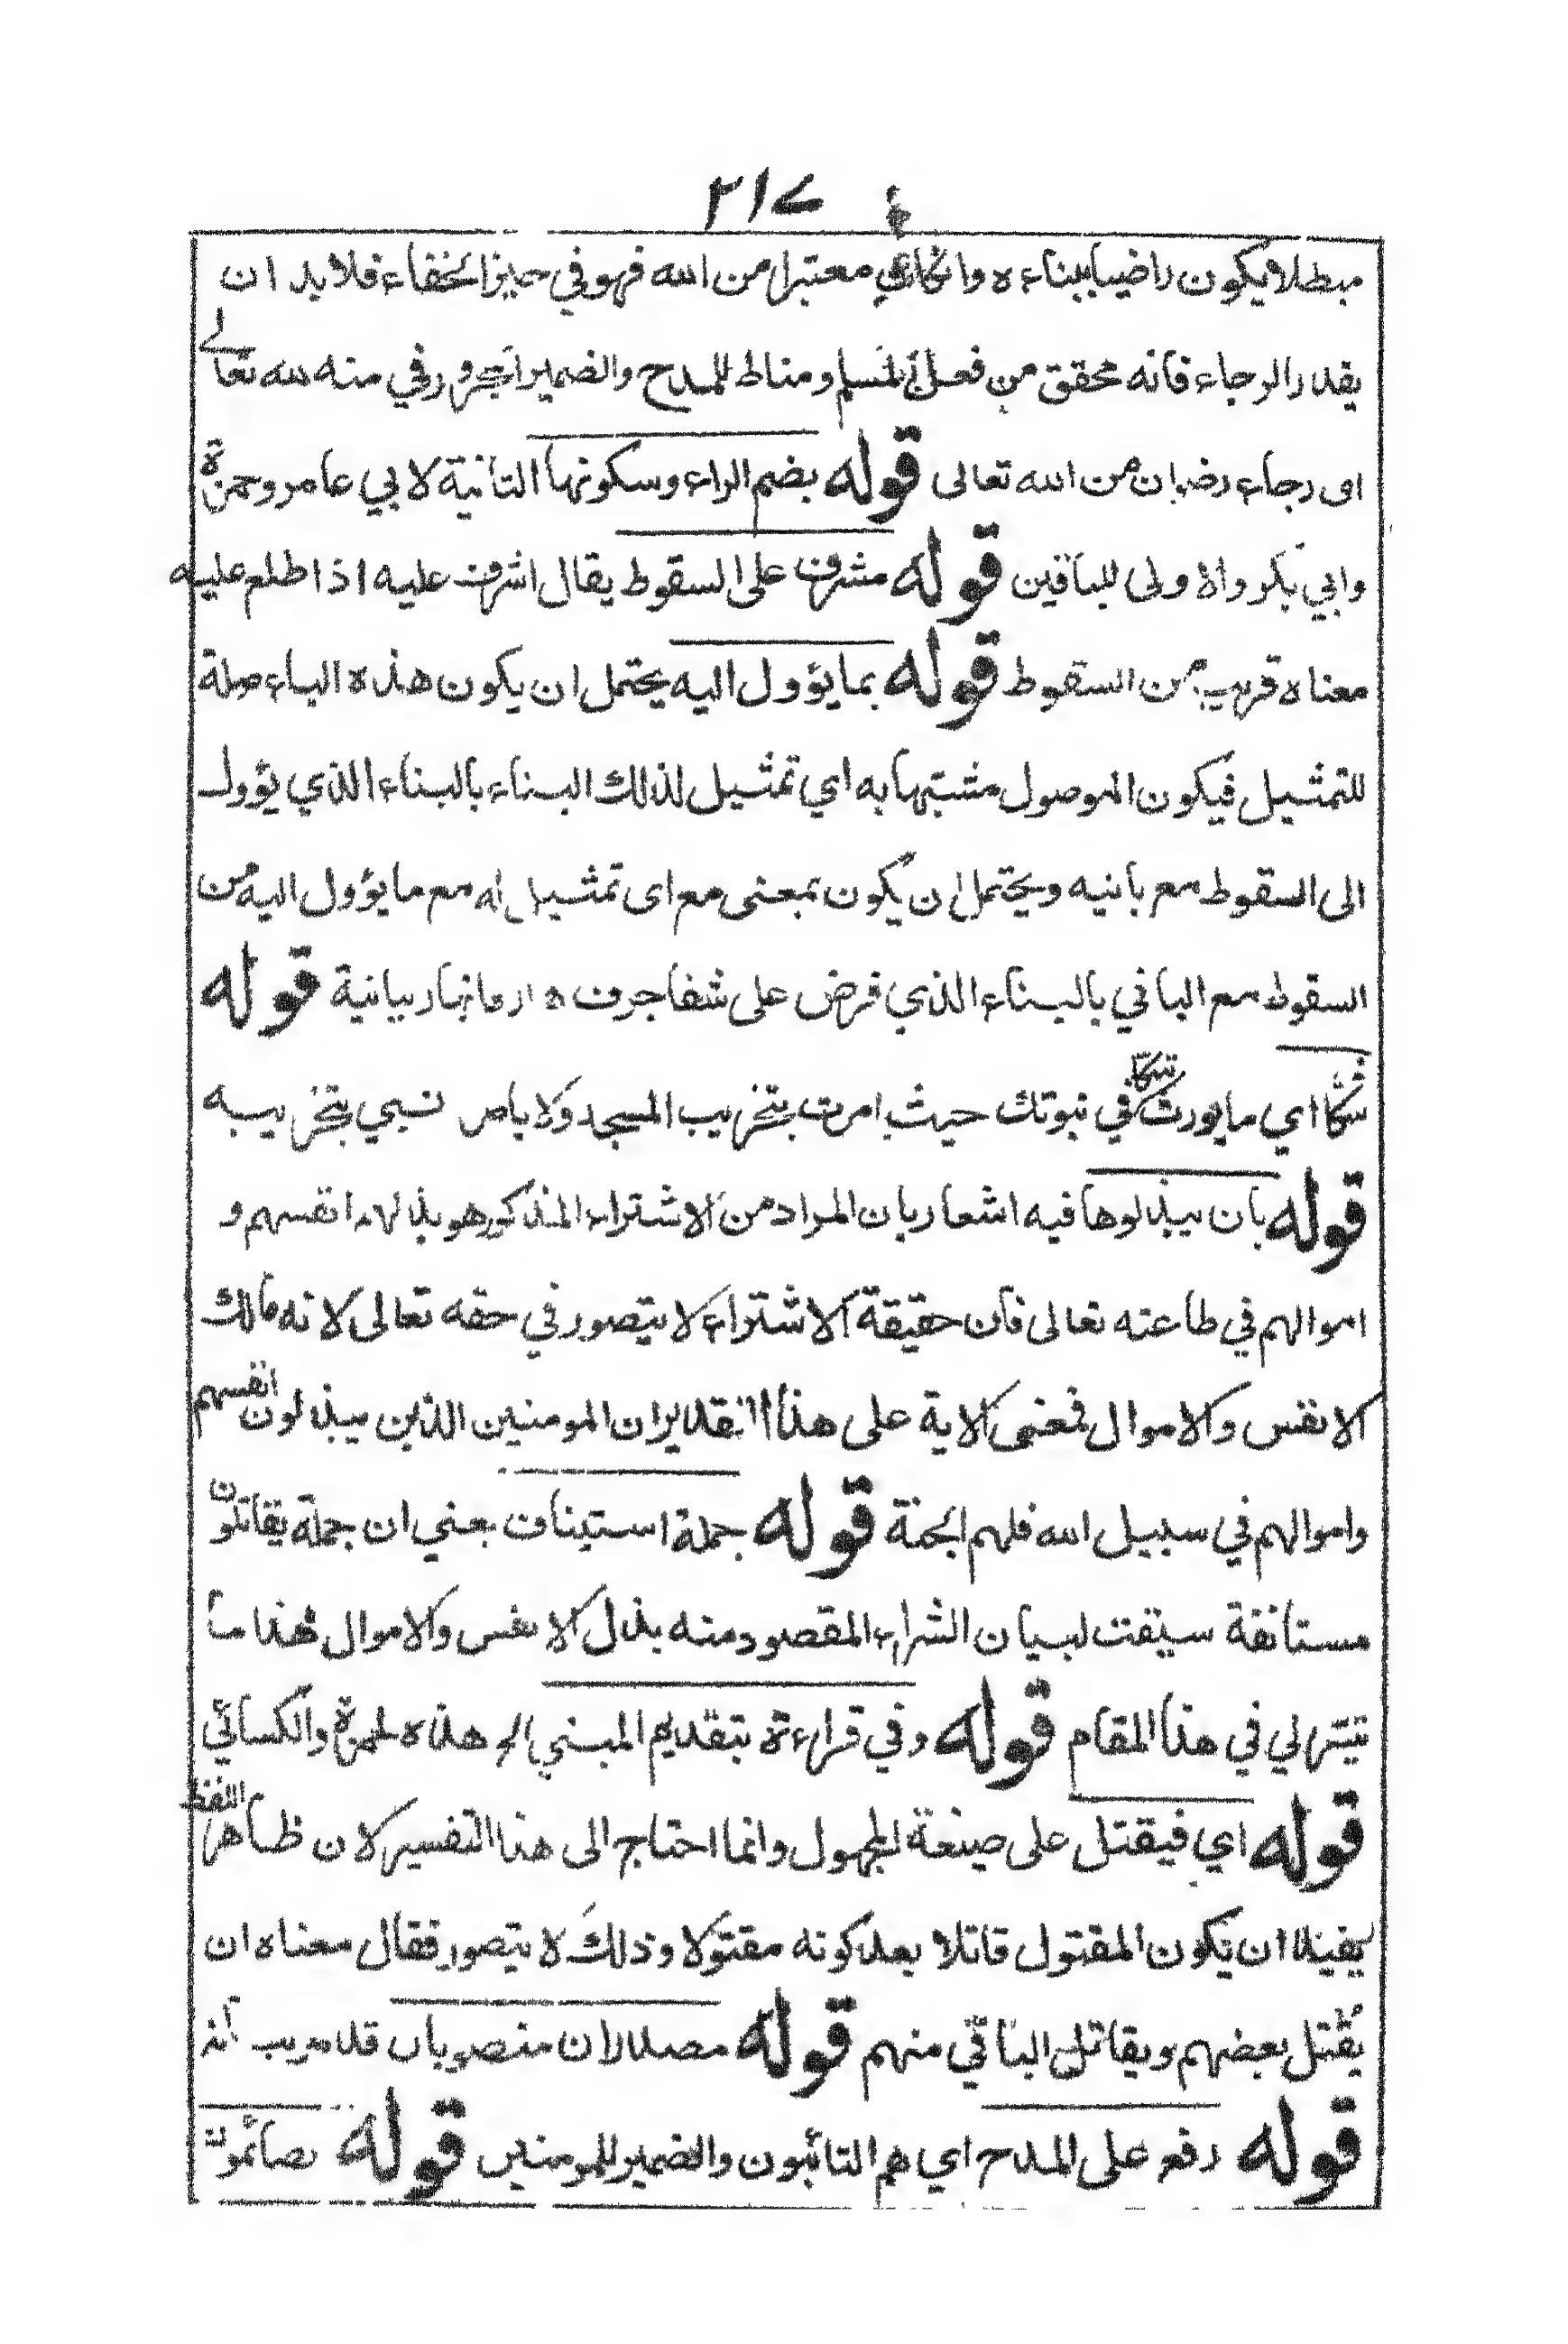 ٢١٧
مبطلا يكون راضيا ببناءه وانكان معتبرا من الله فهو في حيز الخفاء فلا بد ان
يقدر الرجاء فانه محقق من فعل المسلم ومناط للمدح والضمير المجرور في منه لله تعالى
اى رجاء رضوان من الله تعالى قوله بضم الراء وسكونها الثانية لابي عامر وحمزة
وابي بكر والاولى للباقين قوله مشرف على السقوط يقال اشرف عليه اذا طلع عليه
معناه قريب من السقوط قوله بما يؤول اليه يحتمل ان يكون هذه الباء صلة
للتمثيل فيكون الموصول مشبها به اي تمثيل لذلك البناء بالبناء الذي يؤول
الى السقوط مع بانيه ويحتمل ان يكون بمعنى مع اى تمثيل له مع ما يؤول اليه من
السقوط مع الباني بالبناء الذي فرض على شفا جرف هار وما نهار بيانية قوله
شكا اي ما يورث شكا في نبوتك حيث امرت بتخريب المسجد ولا يامر نبي بتخريبه
قوله بان يبذلوها فيه اشعار بان المراد من الاشتراء المذكور هو بذلهم انفسهم و
اموالهم في طاعته تعالى فان حقيقة الاشتراء لا يتصور في حقه تعالى لانه مالك
الانفس والاموال فمعنى الاية على هذا التقدير ان المومنين الذين يبذلون انفسهم
واموالهم في سبيل الله فلهم الجنة قوله جملة استيناف يعني ان جملة يقاتلون
مستانفة سيقت لبيان الشراء المقصود منه بذل الانفس والاموال فهذا ما
تيسر لي في هذا المقام قوله وفي قراءة بتقديم المبني الخ هذه لحمزة والكسائي
قوله اي فيقتل على صيغة المجهول وانما احتاج الى هذا التفسير لان ظاهر اللفظ
يفيد ان يكون المقتول قاتلا بعد كونه مقتولا وذلك لا يتصور فقال معناه ان
يقتل بعضهم ويقاتل الباقي منهم قوله مصدران منصوبان قد مر بيانه
قوله رفع على المدح اي هم التائبون والضمير للمومنين قوله صائمون